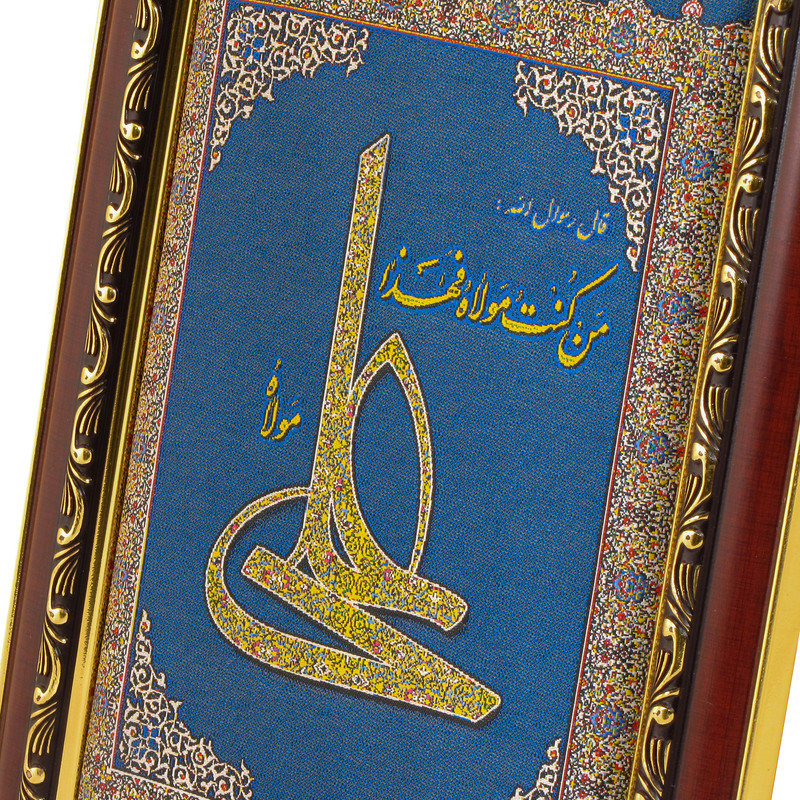 قال رسول الله :
مَن کُنتُ مَولاهُ فَهَذا
علی
مَولاهُ